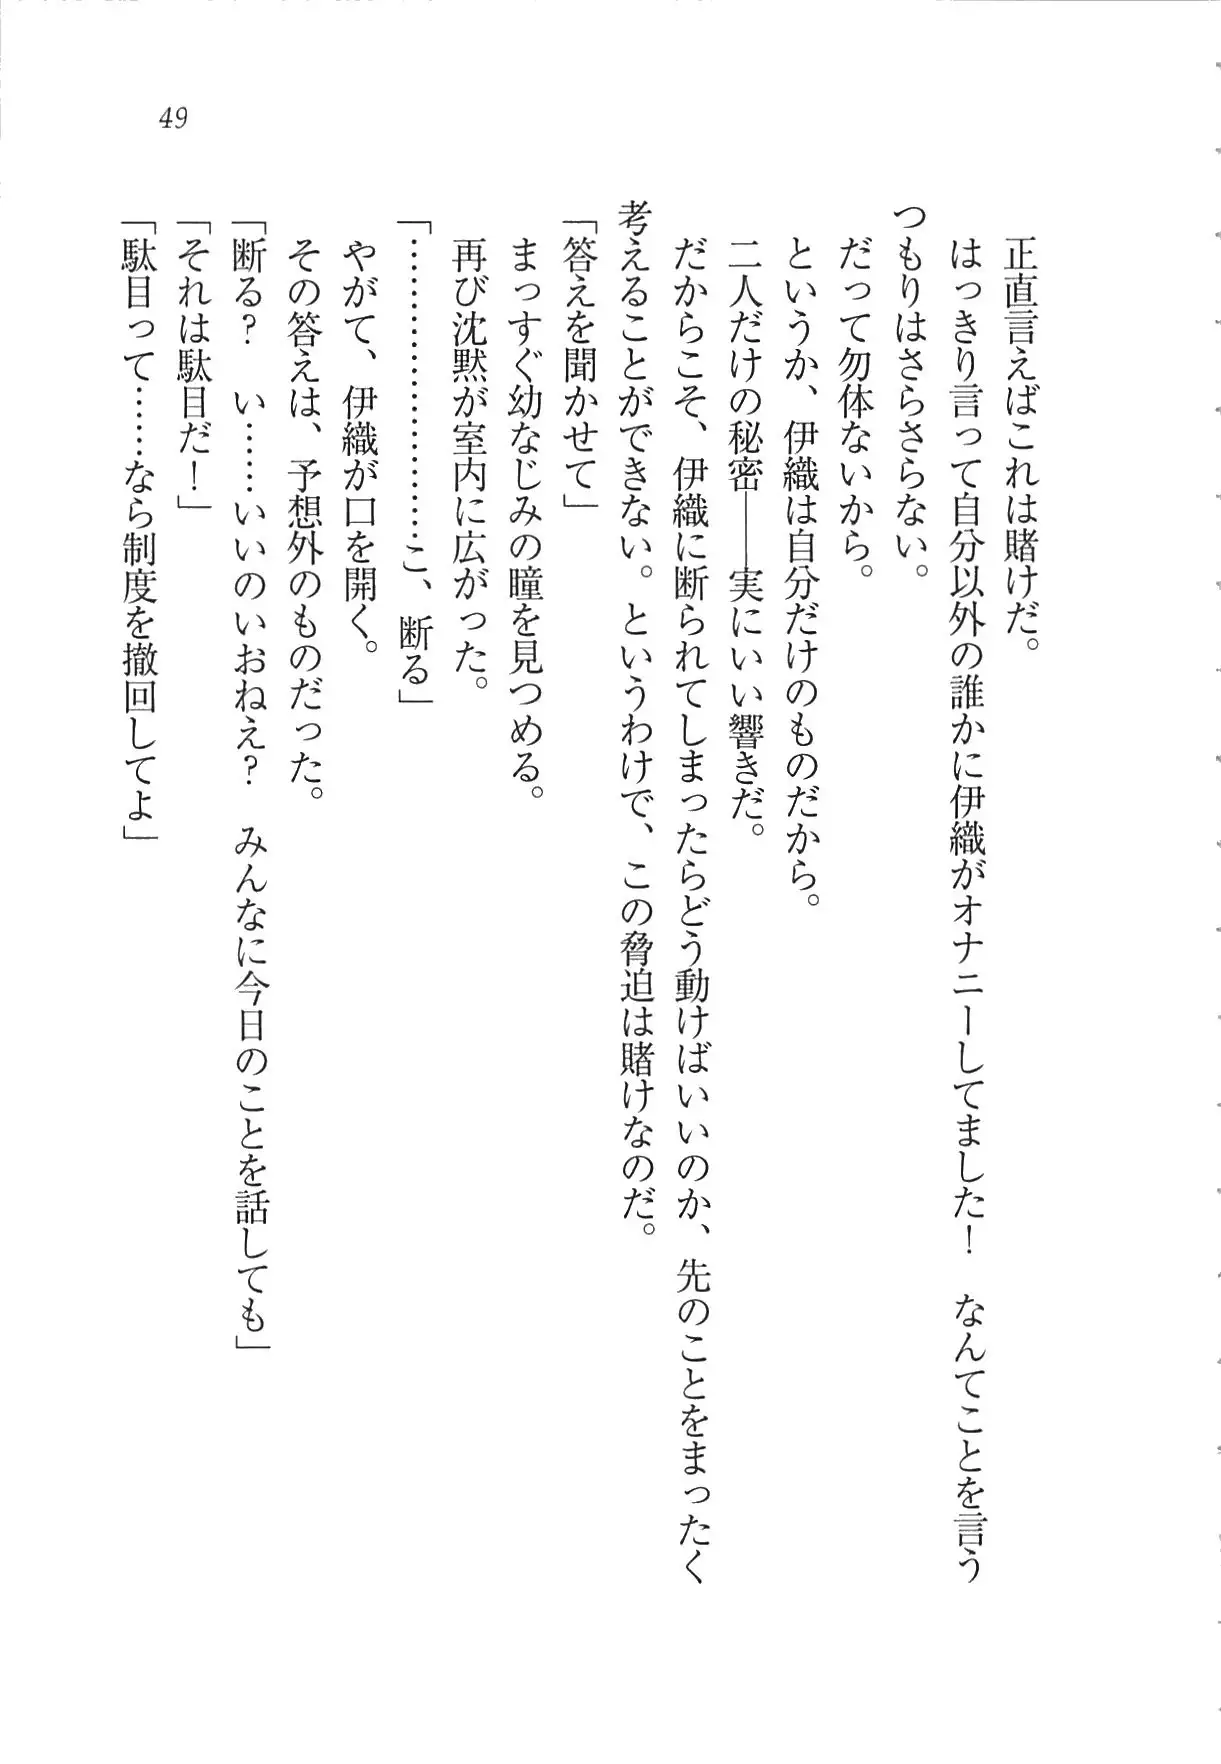 49
正直言えばこれは賭けだ。
はっきり言って自分以外の誰かに伊織がオナニーしてました！　なんてことを言う
つもりはさらさらない。
だって勿体ないから。
というか、伊織は自分だけのものだから。
二人だけの秘密――実にいい響きだ。
だからこそ、伊織に断られてしまったらどう動けばいいのか、先のことをまったく
考えることができない。というわけで、この脅迫は賭けなのだ。
「答えを聞かせて」
まっすぐ幼なじみの瞳を見つめる。
再び沈黙が室内に広がった。
「……………………こ、断る」
やがて、伊織が口を開く。
その答えは、予想外のものだった。
「断る？　い……いいのいおねえ？　みんなに今日のことを話しても」
「それは駄目だ！」
「駄目って……なら制度を撤回してよ」